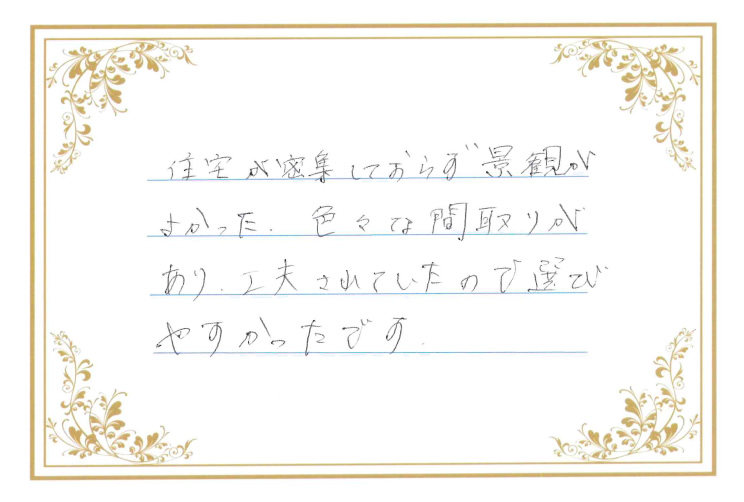 住宅が密集しておらず景観が
よかった. 色々な間取りが
あり. 工夫されていたので選び
やすかったです.